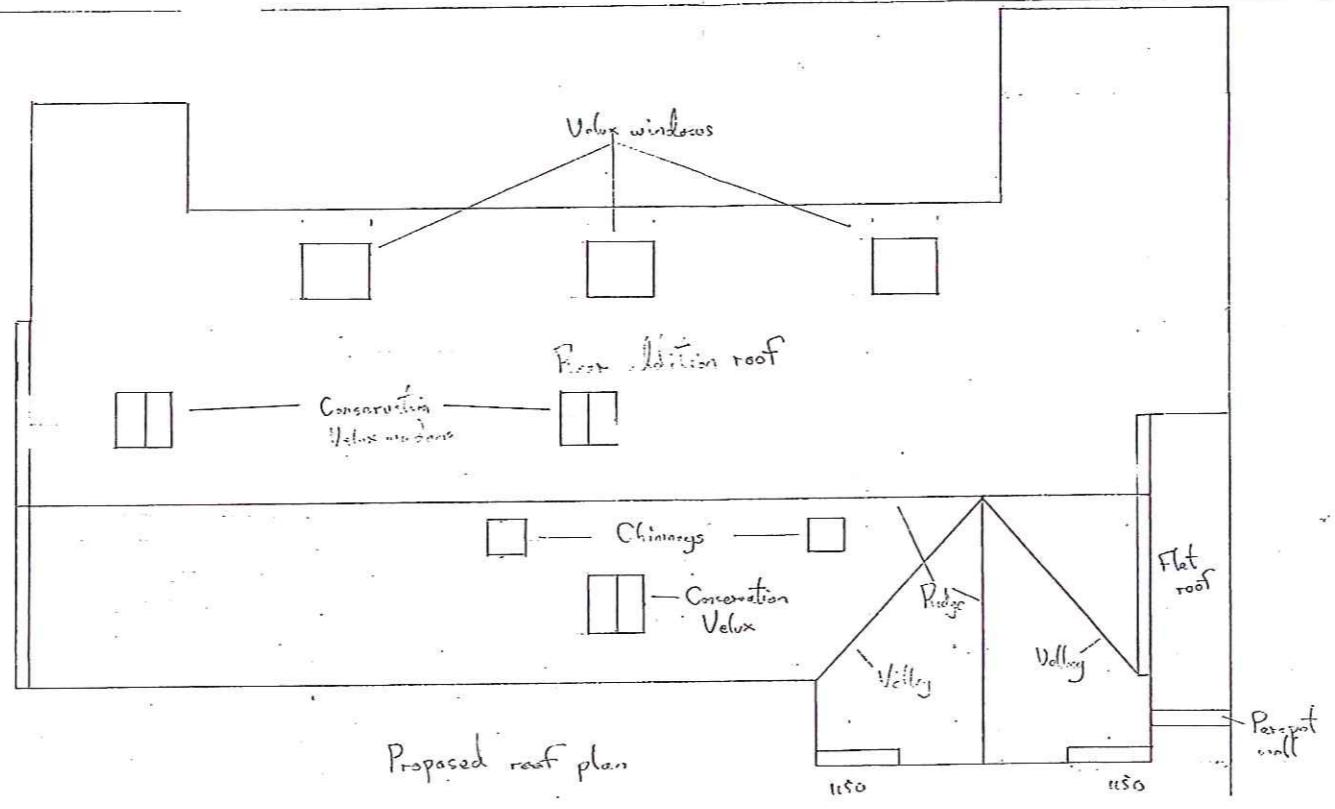 Velux windows
Rear Addition roof
Conservation
Velux windows
Chimneys
Conservation
Velux
Ridge
Valley
Valley
Flat
roof
Parapet
wall
Proposed roof plan
1150
1150